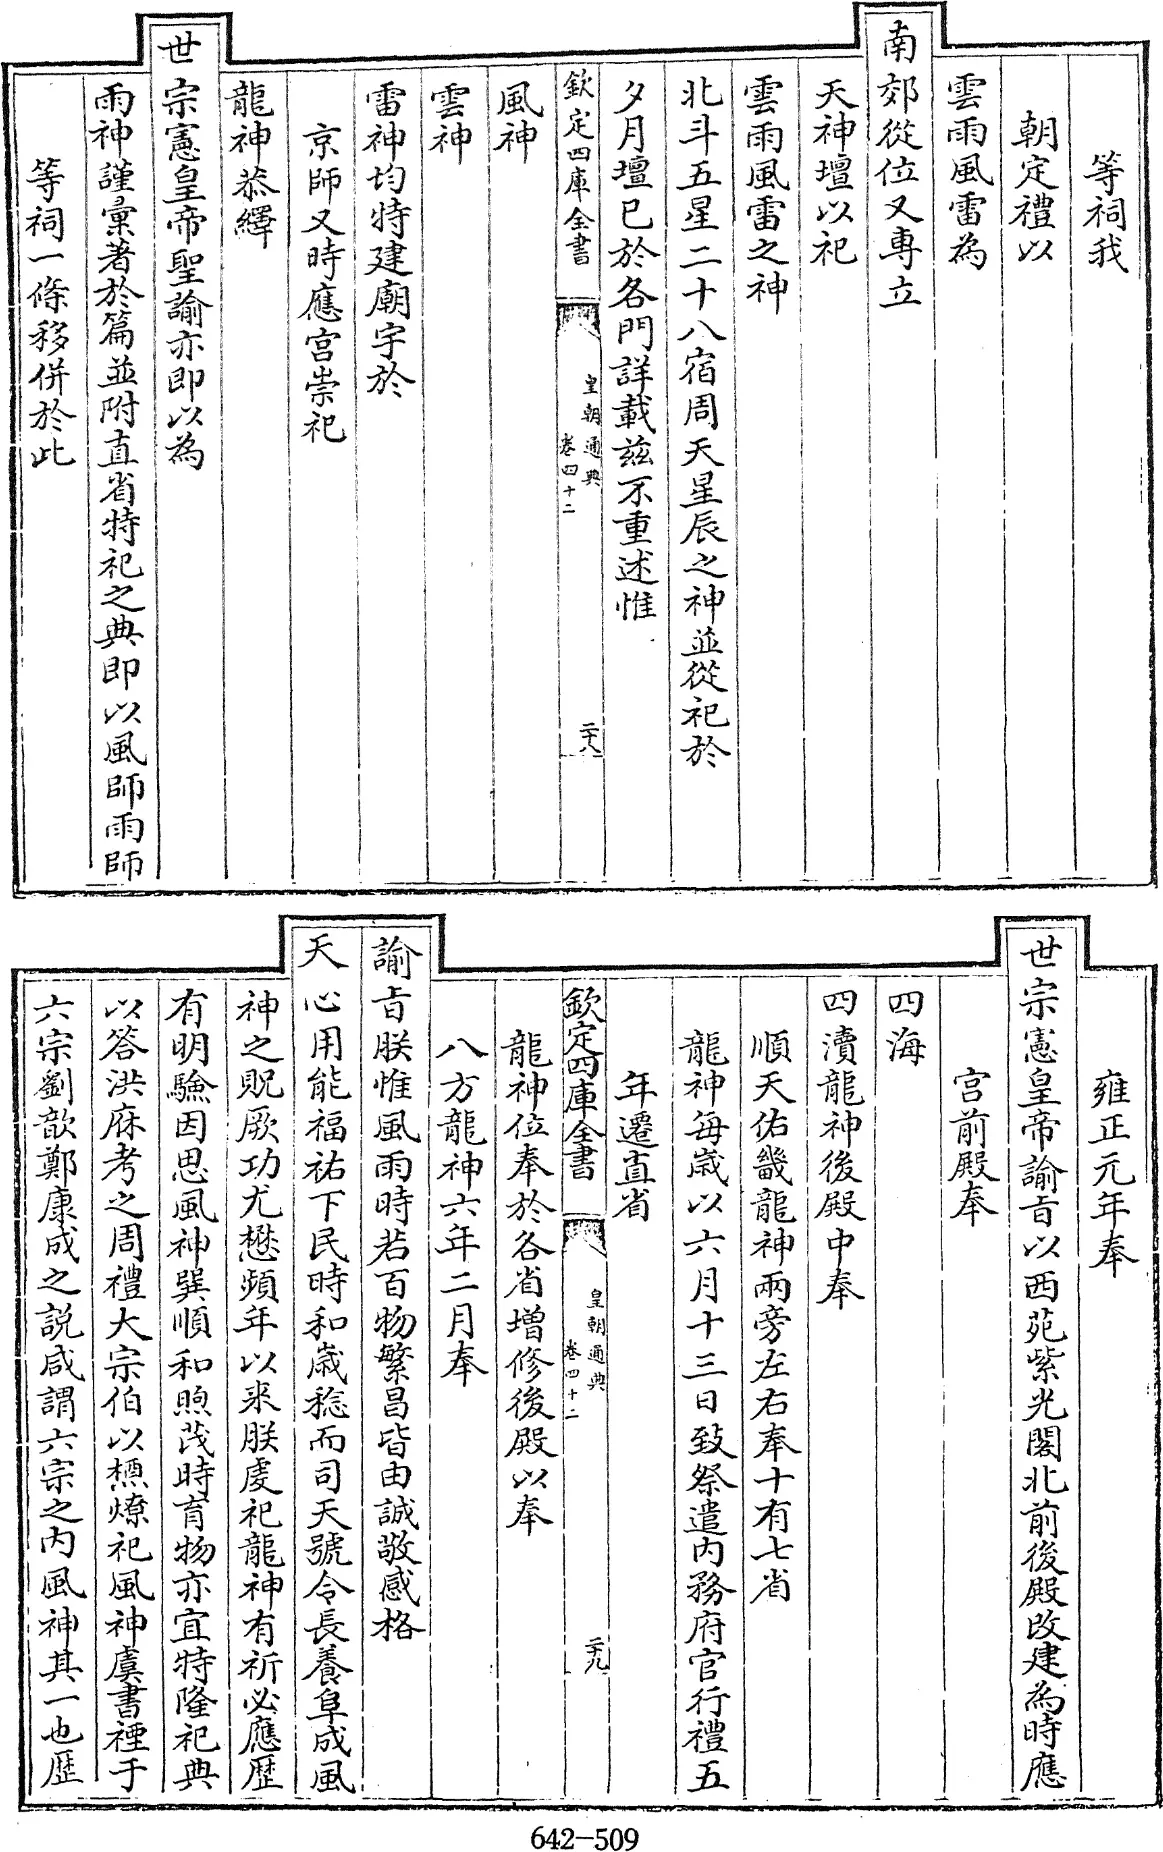 等祠我
朝定禮以
雲雨風雷為
南郊從位又專立
天神壇以祀
雲雨風雷之神
北斗五星二十八宿周天星辰之神並從祀於
夕月壇已於各門詳載茲不重述惟
欽定四庫全書
皇朝通典
卷四十二
二十八
風神
雲神
雷神均特建廟宇於
京師又時應宮崇祀
龍神恭繹
世宗憲皇帝聖諭亦即以為
雨神謹彙著於篇並附直省特祀之典即以風師雨師
等祠一條移併於此
雍正元年奉
世宗憲皇帝諭旨以西苑紫光閣北前後殿改建為時應
宮前殿奉
四海
四瀆龍神後殿中奉
順天佑畿龍神兩旁左右奉十有七省
龍神每歲以六月十三日致祭遣内務府官行禮五
年遷直省
欽定四庫全書
皇朝通典
卷四十二
二十九
龍神位奉於各省增修後殿以奉
八方龍神六年二月奉
諭旨朕惟風雨時若百物繁昌皆由誠敬感格
天心用能福祐下民時和歲稔而司天號令長養阜成風
神之貺厥功尤懋頻年以來朕虔祀龍神有祈必應歷
有明驗因思風神巽順和煦茂時育物亦宜特隆祀典
以答洪庥考之周禮大宗伯以槱燎祀風神虞書禋于
六宗劉歆鄭康成之説咸謂六宗之内風神其一也歷
642-509